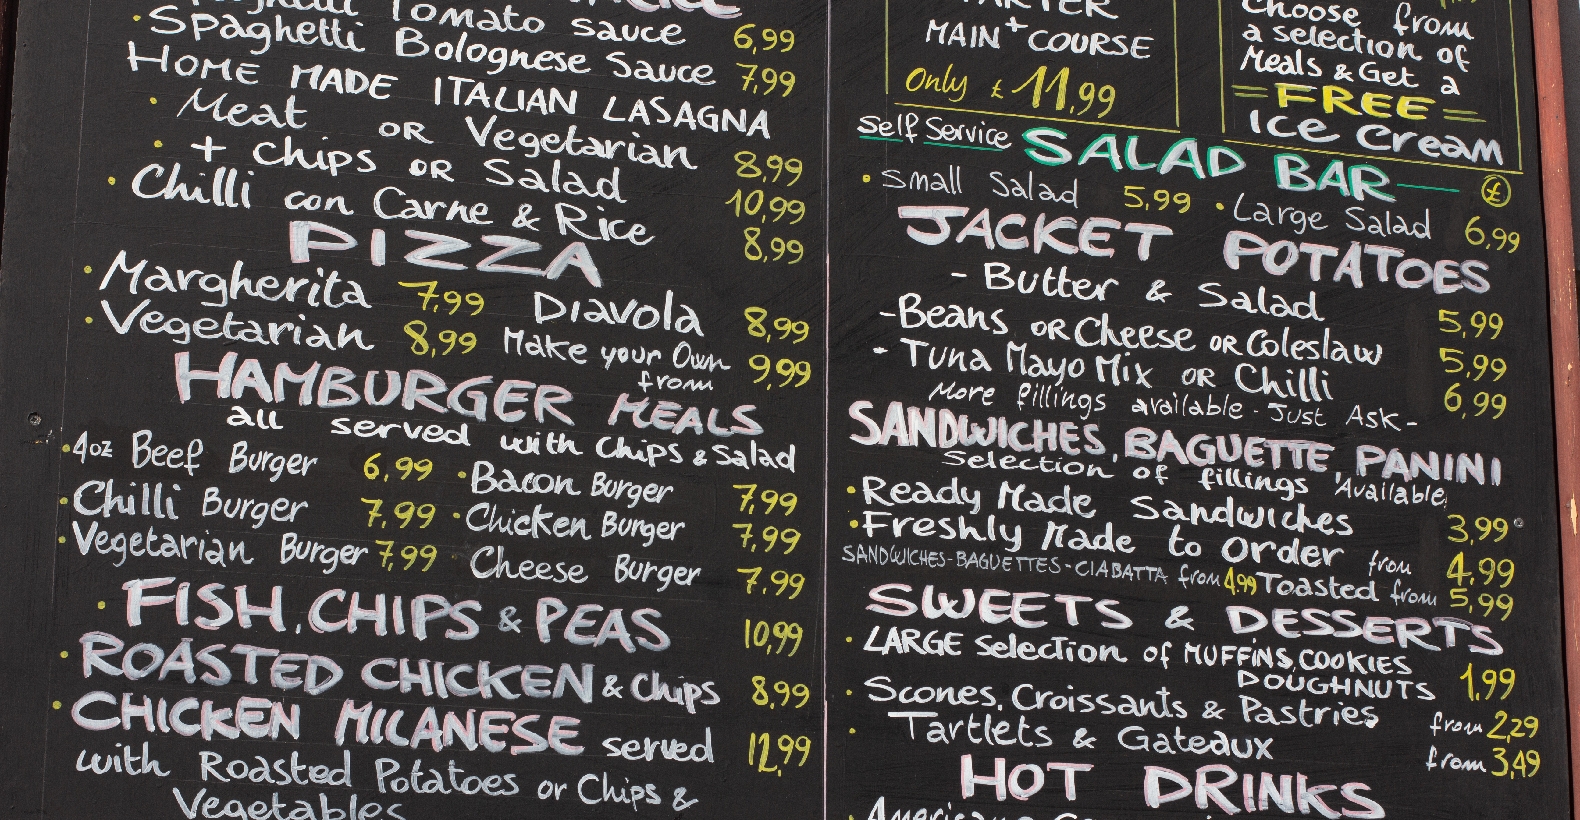 Tomato sauce 6,99
• Spaghetti Bolognese Sauce 7,99
HOME MADE ITALIAN LASAGNA
• Meat OR Vegetarian 8,99
• + Chips OR Salad 10,99
• Chilli con Carne & Rice 8,99
PIZZA
• Margherita 7,99 Diavola 8,99
• Vegetarian 8,99 Make your Own from 9,99
HAMBURGER MEALS
all served with Chips & Salad
• 4oz Beef Burger 6,99 • Bacon Burger 7,99
• Chilli Burger 7,99 • Chicken Burger 7,99
• Vegetarian Burger 7,99 Cheese Burger 7,99
• FISH, CHIPS & PEAS 10,99
• ROASTED CHICKEN & Chips 8,99
• CHICKEN MILANESE served 12,99
with Roasted Potatoes or Chips &
Vegetables
MAIN + COURSE
Only £ 11,99
Choose from
a selection of
Meals & Get a
= FREE =
Ice Cream
Self Service SALAD BAR — £
• Small Salad 5,99 • Large Salad 6,99
JACKET POTATOES
- Butter & Salad 5,99
- Beans OR Cheese OR Coleslaw 5,99
- Tuna Mayo Mix OR Chilli 6,99
More fillings available - Just Ask -
SANDWICHES, BAGUETTE, PANINI
Selection of fillings Available
• Ready Made Sandwiches 3,99
• Freshly Made to Order from 4,99
SANDWICHES - BAGUETTES - CIABATTA from 4,99 Toasted from 5,99
SWEETS & DESSERTS
• LARGE Selection of MUFFINS, COOKIES
DOUGHNUTS 1,99
• Scones, Croissants & Pastries from 2,29
• Tartlets & Gateaux from 3,49
HOT DRINKS